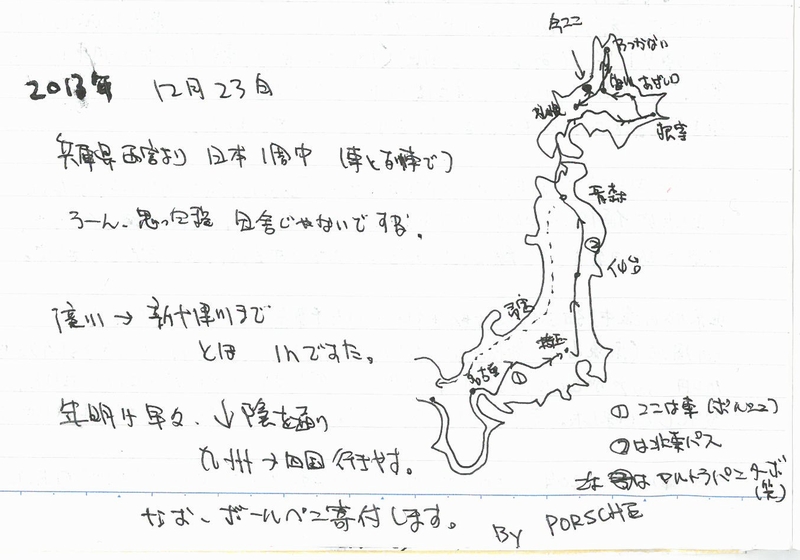 2013年 12月23日
兵庫県西宮より 日本1周中 (車と列車で)
うーん、思った程 田舎じゃないですな。
滝川→新十津川まで
とほ 1hでした。
年明け早々、山陰を通り
九州→四国 行きやす。
なお、ボールペン寄付します。
By PORSCHE
今ココ
わっかない
旭川
あばしり
札幌
根室
青森
②
仙台
名古屋
①
①ココは車(ポルシェ)
②は北東パス
ターボ
(笑)